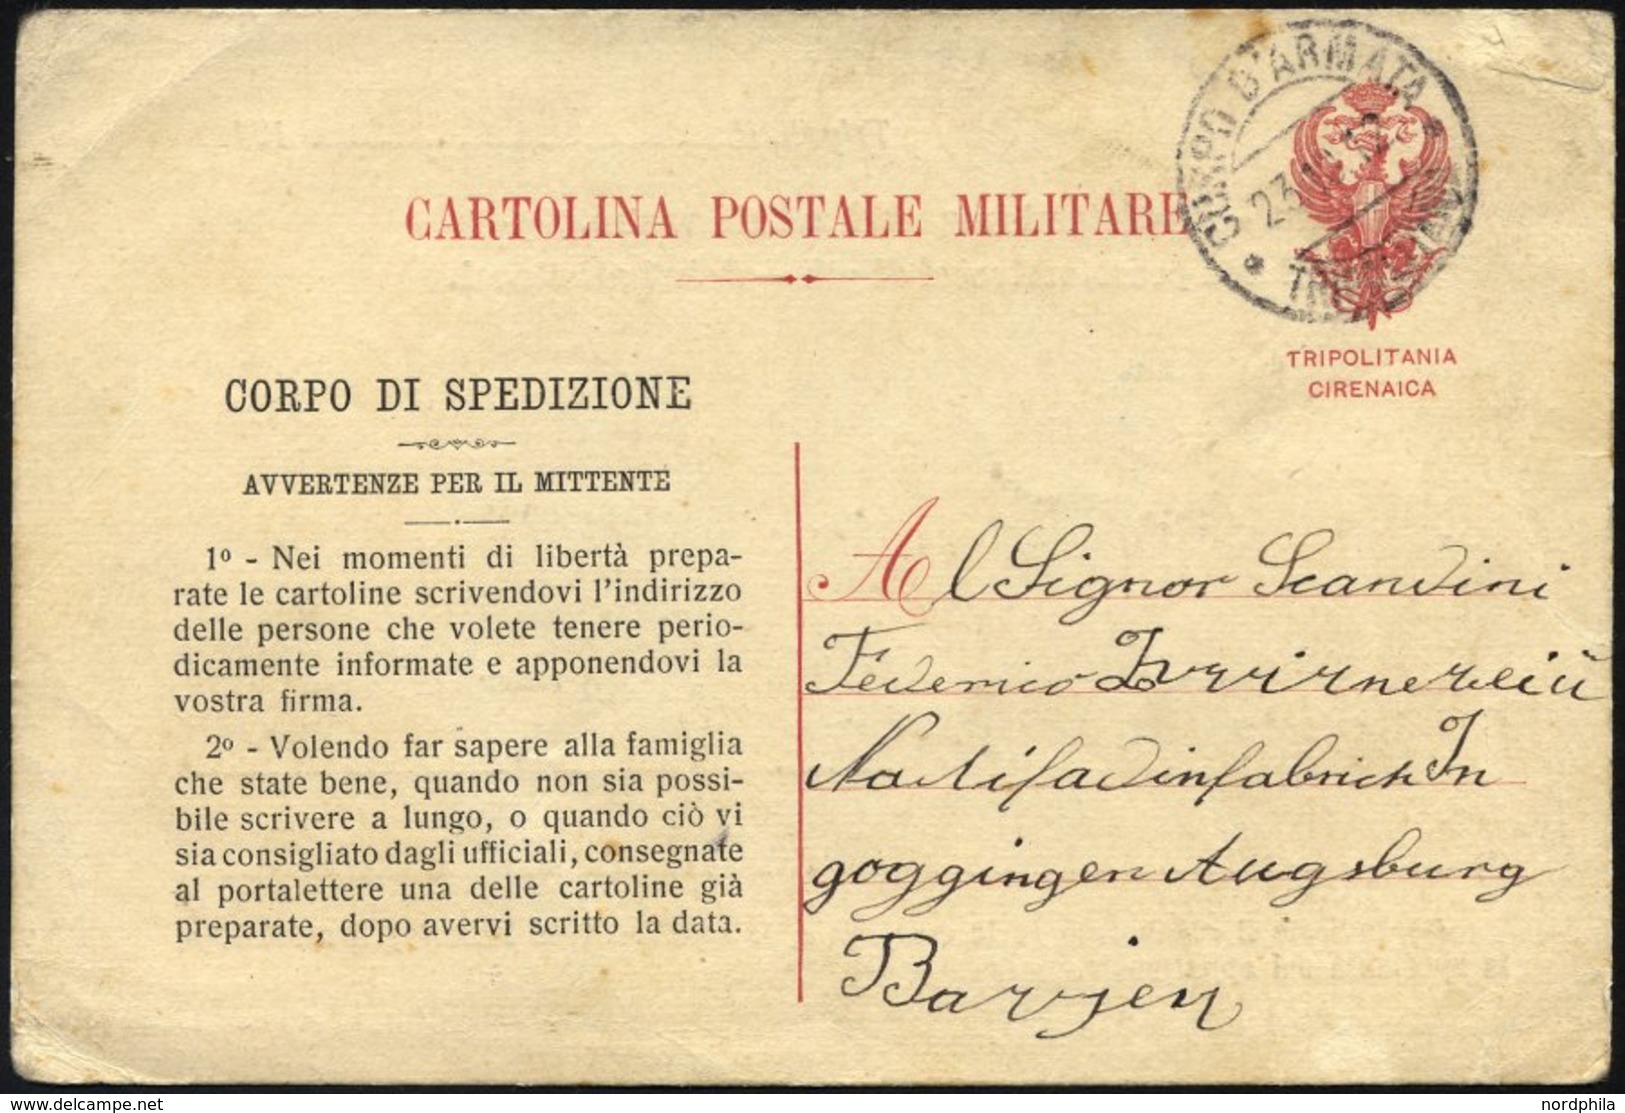 CORPO D'ARMATA
23
12
CARTOLINA POSTALE MILITARE
TRIPOLITANIA
CIRENAICA
CORPO DI SPEDIZIONE
AVVERTENZE PER IL MITTENTE
1º - Nei momenti di libertà prepa-
rate le cartoline scrivendovi l'indirizzo
delle persone che volete tenere perio-
dicamente informate e apponendovi la
vostra firma.
2º - Volendo far sapere alla famiglia
che state bene, quando non sia possi-
bile scrivere a lungo, o quando ciò vi
sia consigliato dagli ufficiali, consegnate
al portalettere una delle cartoline già
preparate, dopo avervi scritto la data.
Al Signor Scandini
Federico
In
goggingen Augsburg
Barjen
delcampe.net
nordphila